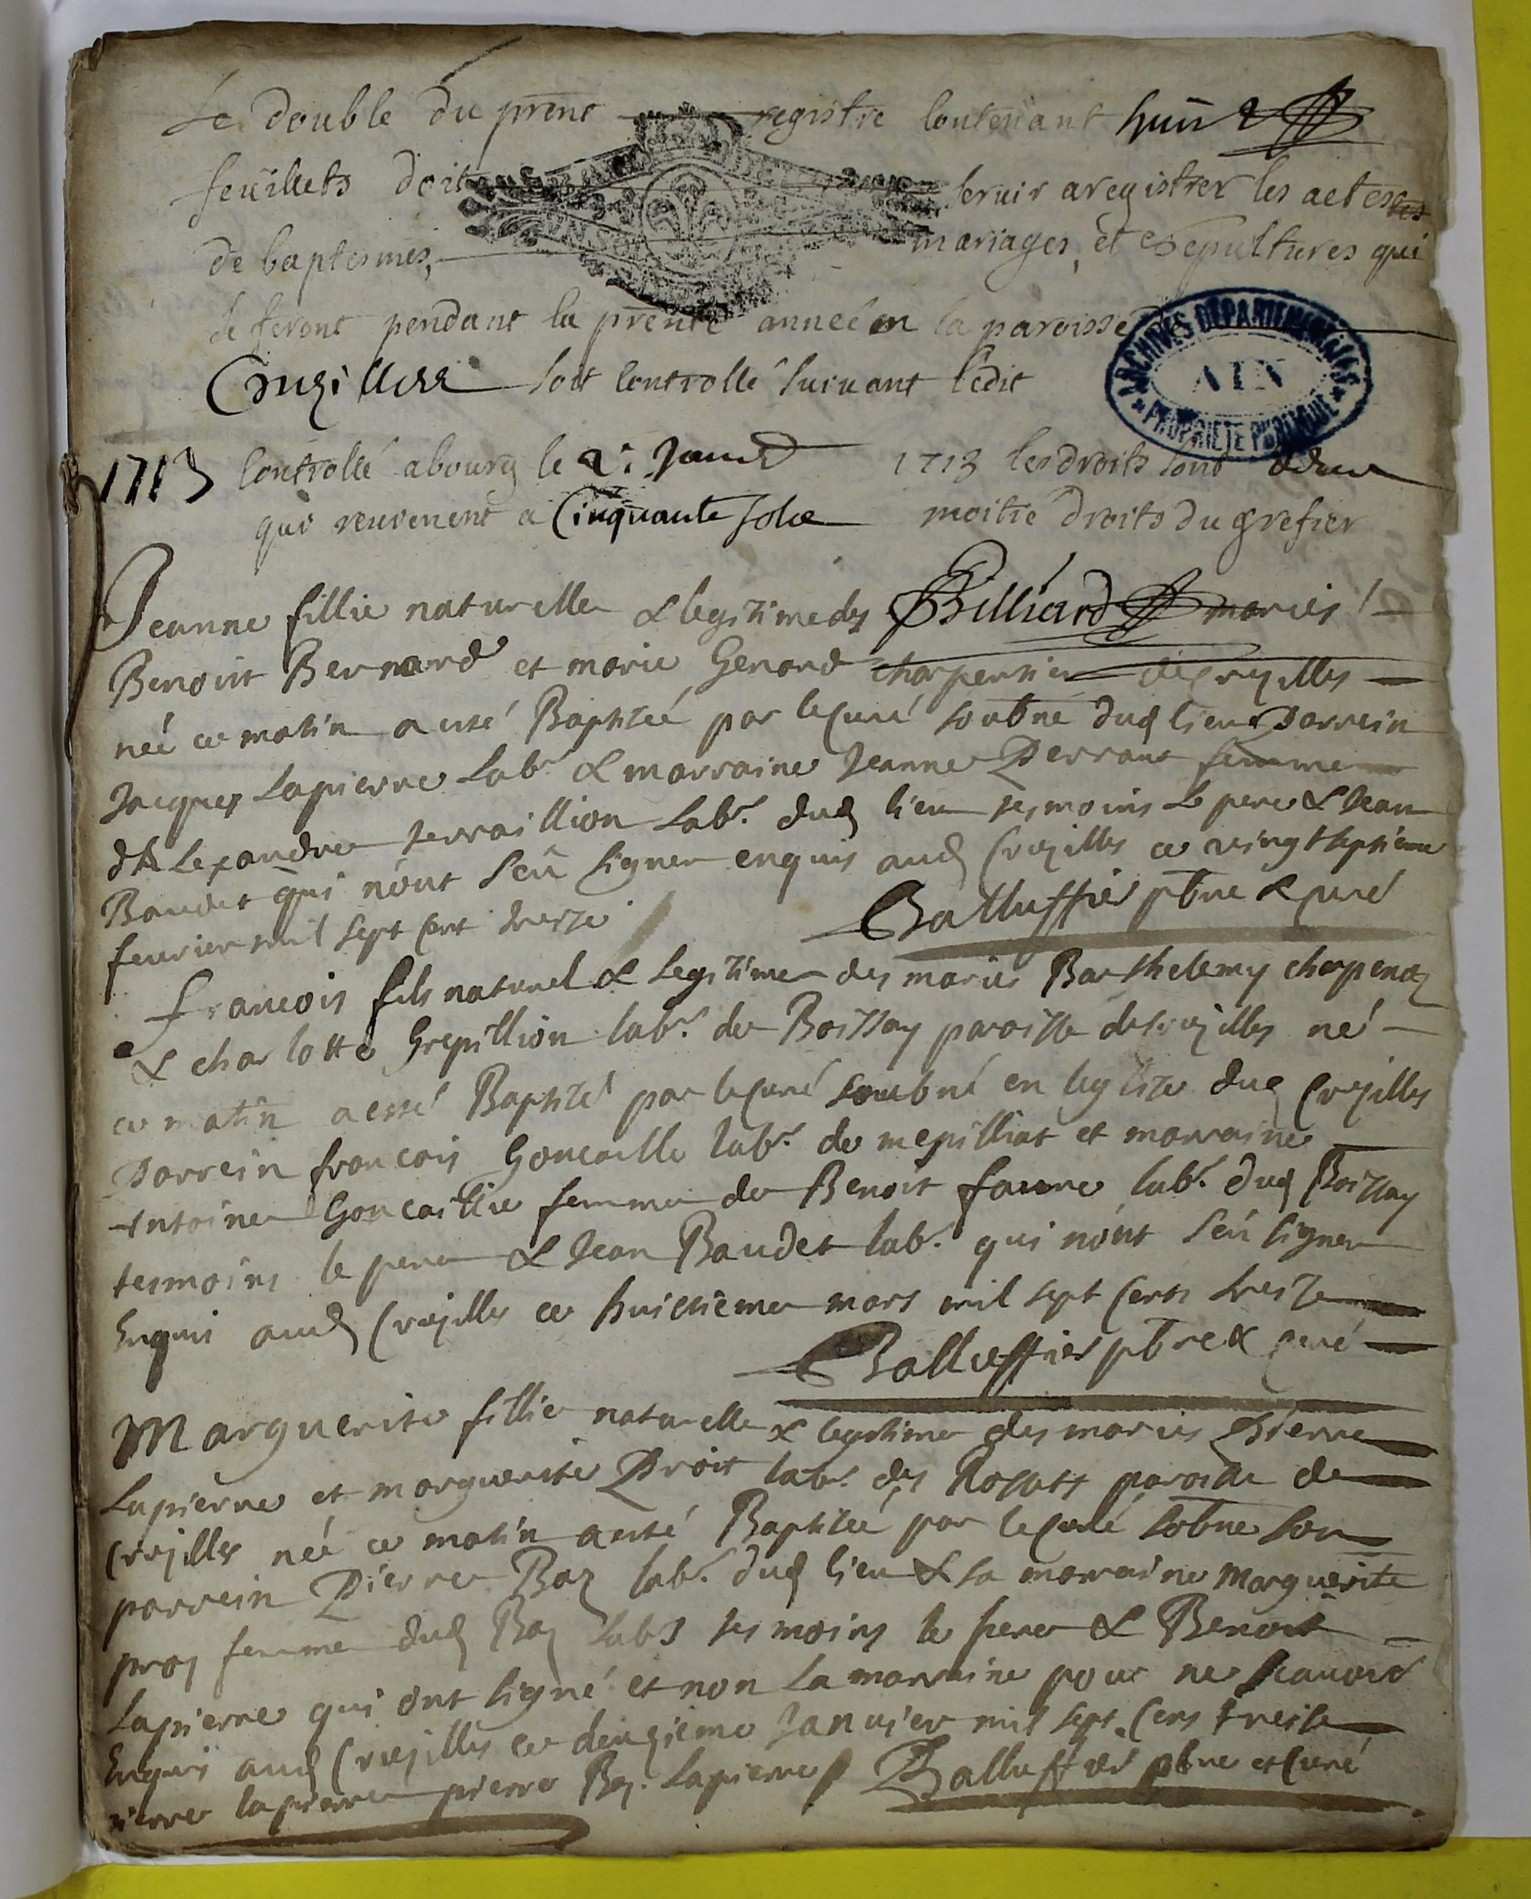 Le double du prēnt registre contenant huit
feüillets doit servir a registrer les actes
de baptesmes, mariages, et sepultures qui
se feront pendant la prēnte année en la paroisse
Cruzilles soit controllé suivant l'edit
1713 Controllé a bourg le 2e Janv 1713 les droits sont
qui reuienent a Cinquante sols moitié droits du grefier
ARCHIVES DÉPARTEMENTALES
AIN
PROPRIÉTÉ PUBLIQUE
Billiard
Jeanne fillie naturelle & legitime des mariés
Benoist Bernard et marie Genard charpentier de Cruzilles
née ce matin a esté Baptizée par le Curé soubné dud lieu Parrein
Jacques Lapierre Labr & marraine Jeanne Perraut femme
d'Alexandre terraillion Labr. dud lieu tesmoins le pere & Jean
Baudet qui n'ont sçû signer enquis aud Cruzilles ce vingt septieme
feurier mil sept cent treize
Balluffier pbre & curé
françois fils naturel & legitime des mariés Barthelemy charpenay
& charlotte Grepillion labr. de Boissay paroisse de Cruzilles né
ce matin a esté Baptizé par le Curé soubné en leglize dud Cruzilles
Parrein françois Goncaille labr. de mepilliat et marraine
Antoine Goncaillie femme de Benoit faure labr. dud Boissay
tesmoins le pere & Jean Baudet labr. qui n'ont sçû signer
Enquis aud Cruzilles ce huictieme mars mil sept cents treize
Balluffier pbre & curé
Marguerite fillie naturelle & legitime des mariés Pierre
Lapierre et marguerite Droit labr. des paroisse de
Cruzilles née ce matin a esté Baptizée par le Curé sobne son
parrein Pierre Baz labr. dud lieu & la marraine marguerite
proz femme dud Baz labr tesmoins le pere & Benoit
Lapierre qui ont signé et non la marraine pour ne scauoir
Enquis aud Cruzilles ce deuzieme Januier mil sept cens treise
pierre lapierre pierre Baz. Lapierre Balluffier pbre et Curé